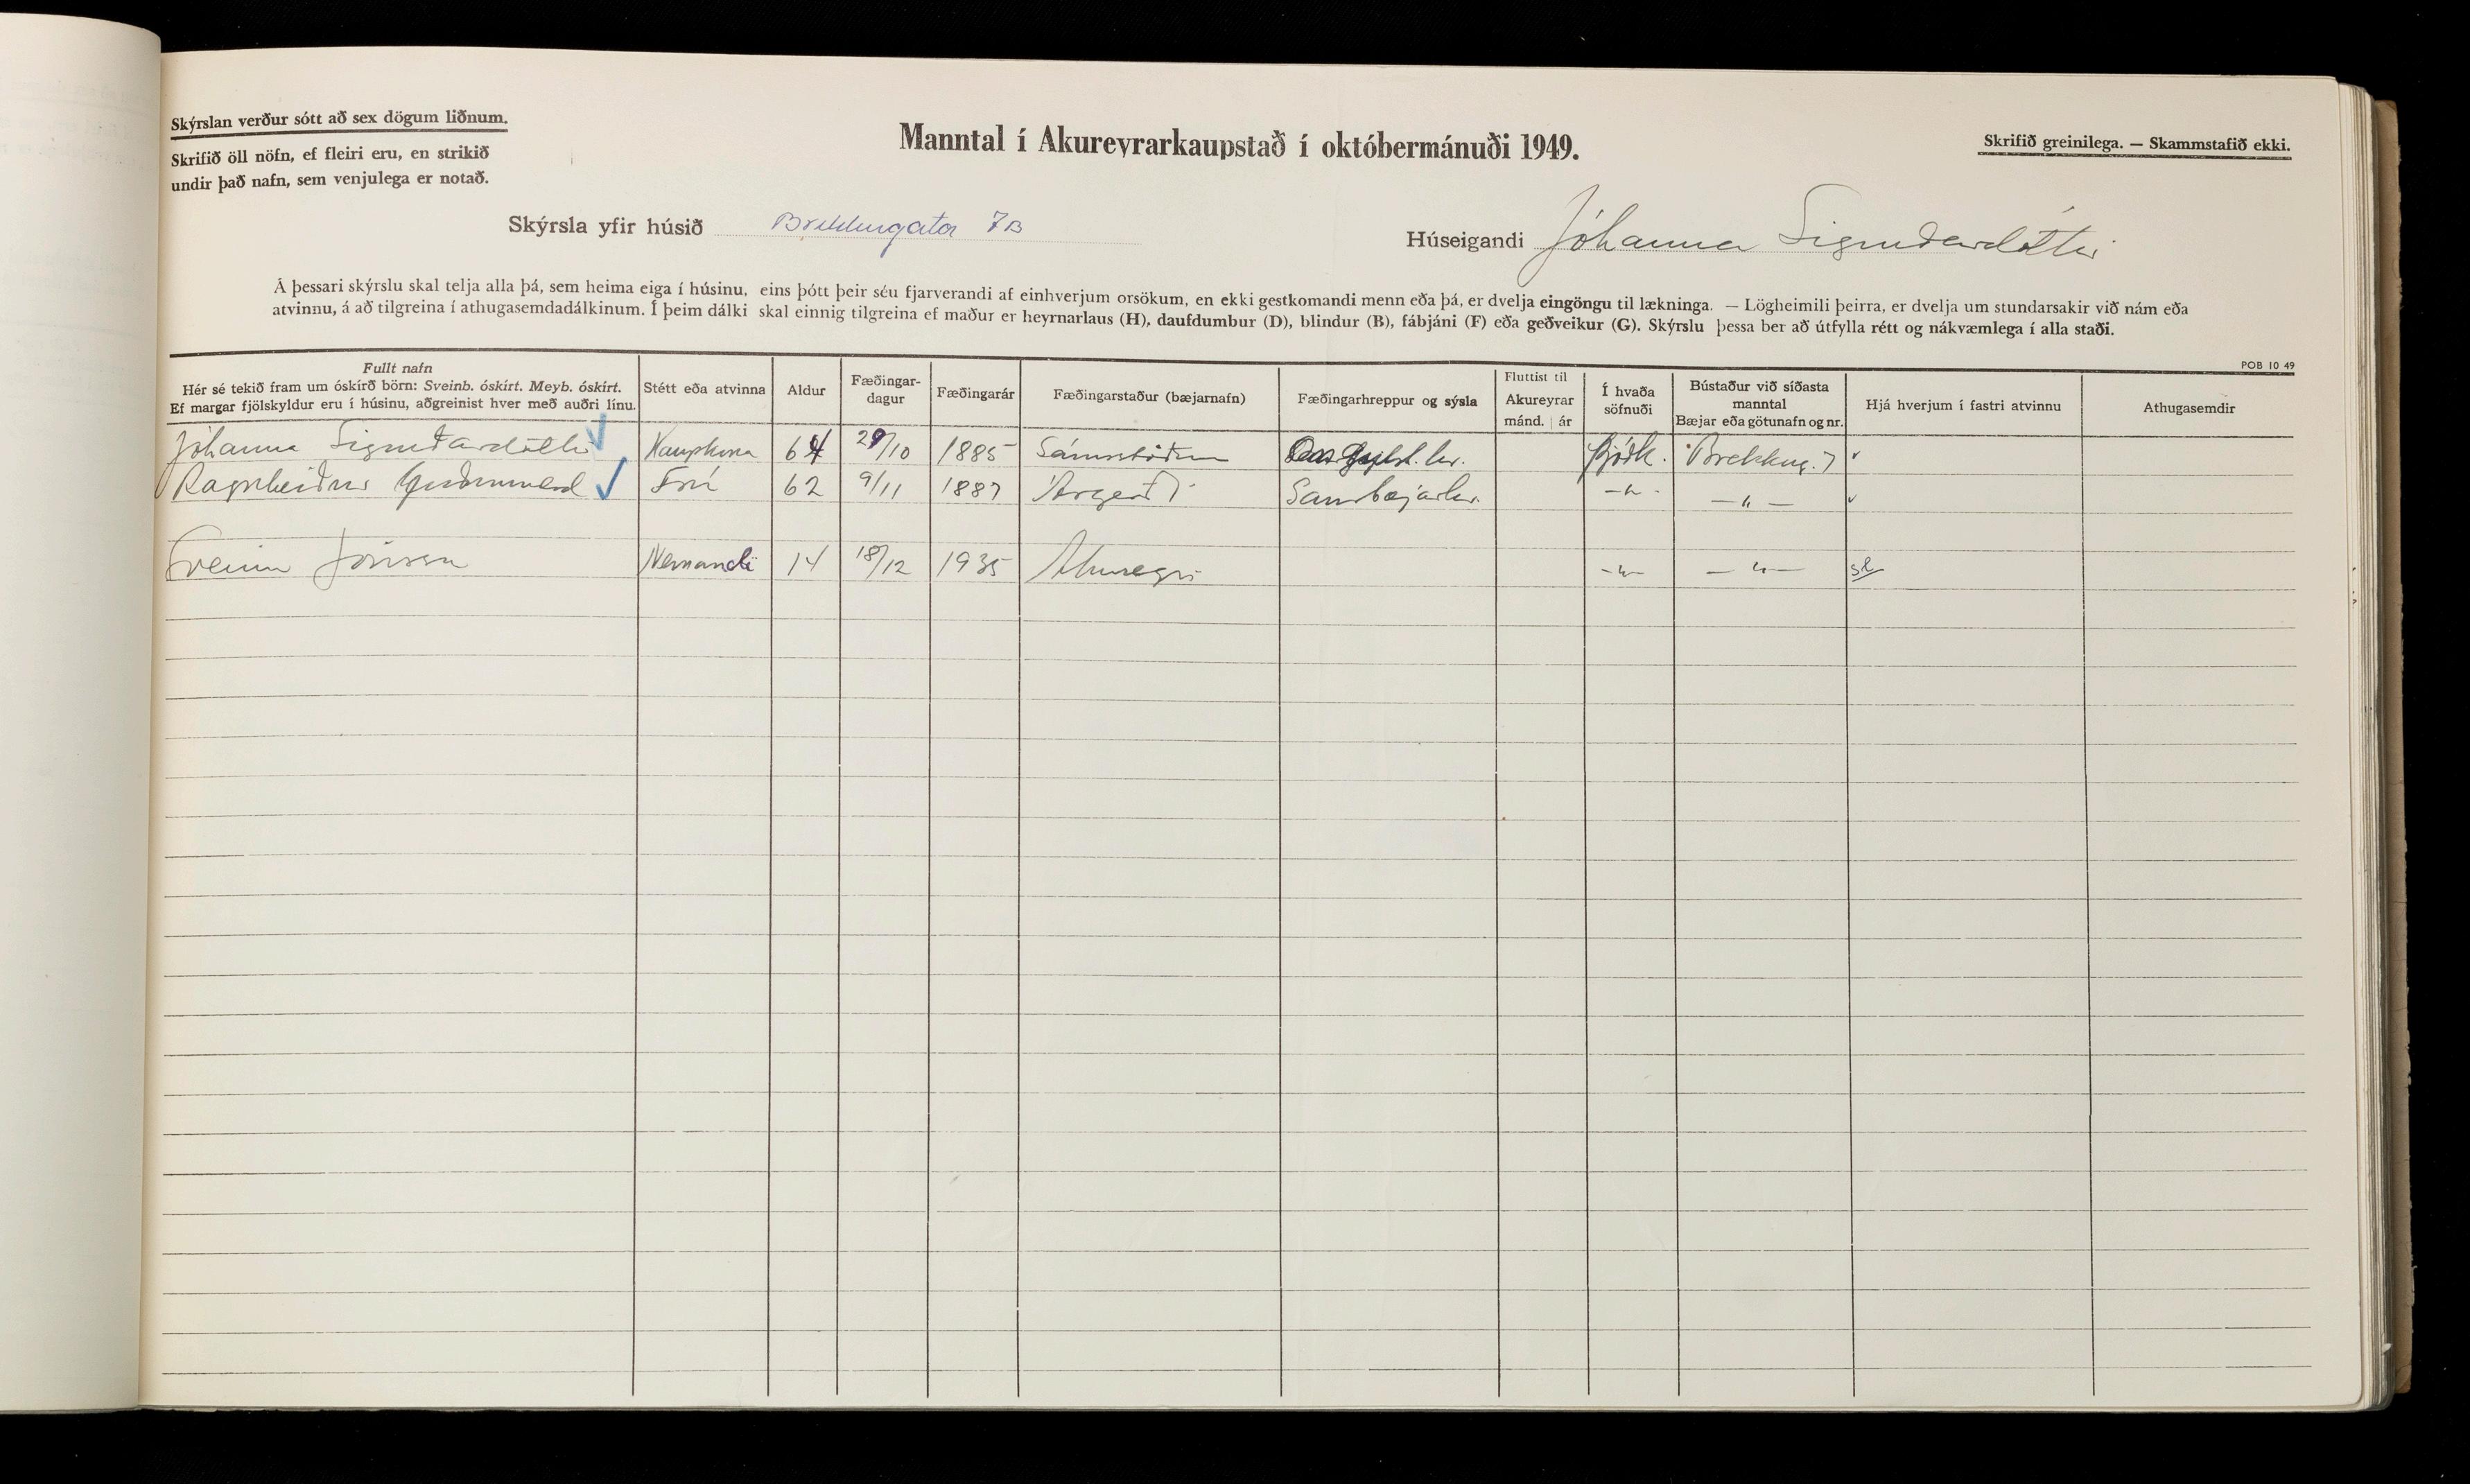 Skýrslan verður sótt að sex dögum liðnum.
Skrifið öll nöfn, ef fleiri eru, en strikið
undir það nafn, sem venjulega er notað.
Manntal í Akureyrarkaupstað í októbermánuði 1949.
Skrifið greinilega. — Skammstafið ekki.
Skýrsla yfir húsið Brekkugata 7B
Húseigandi Jóhanna Sigurðardóttir
Á þessari skýrslu skal telja alla þá, sem heima eiga í húsinu, eins þótt þeir séu fjarverandi af einhverjum orsökum, en ekki gestkomandi menn eða þá, er dvelja eingöngu til lækninga. — Lögheimili þeirra, er dvelja um stundarsakir við nám eða
atvinnu, á að tilgreina í athugasemdadálkinum. Í þeim dálki skal einnig tilgreina ef maður er heyrnarlaus (H), daufdumbur (D), blindur (B), fábjáni (F) eða geðveikur (G). Skýrslu þessa ber að útfylla rétt og nákvæmlega í alla staði.
POB 10 49
Fullt nafn
Hér sé tekið fram um óskírð börn: Sveinb. óskírt. Meyb. óskírt.
Ef margar fjölskyldur eru í húsinu, aðgreinist hver með auðri línu.
Stétt eða atvinna
Aldur
Fæðingar-
dagur
Fæðingarár
Fæðingarstaður (bæjarnafn)
Fæðingarhreppur og sýsla
Fluttist til
Akureyrar
mánd. | ár
Í hvaða
söfnuði
Bústaður við síðasta
manntal
Bæjar eða götunafn og nr.
Hjá hverjum í fastri atvinnu
Athugasemdir
Jóhanna Sigurðardóttir Kaupkona 64 29/10 1885 Sámsstöðum Þjóðk. Brekkug. 7
Ragnheiður Guðmundsd Frú 62 9/11 1887 Árgerði Saurbæjarhr. -"- -"-
Sveinn Jónsson Nemandi 14 18/12 1935 Akureyri -"- -"-